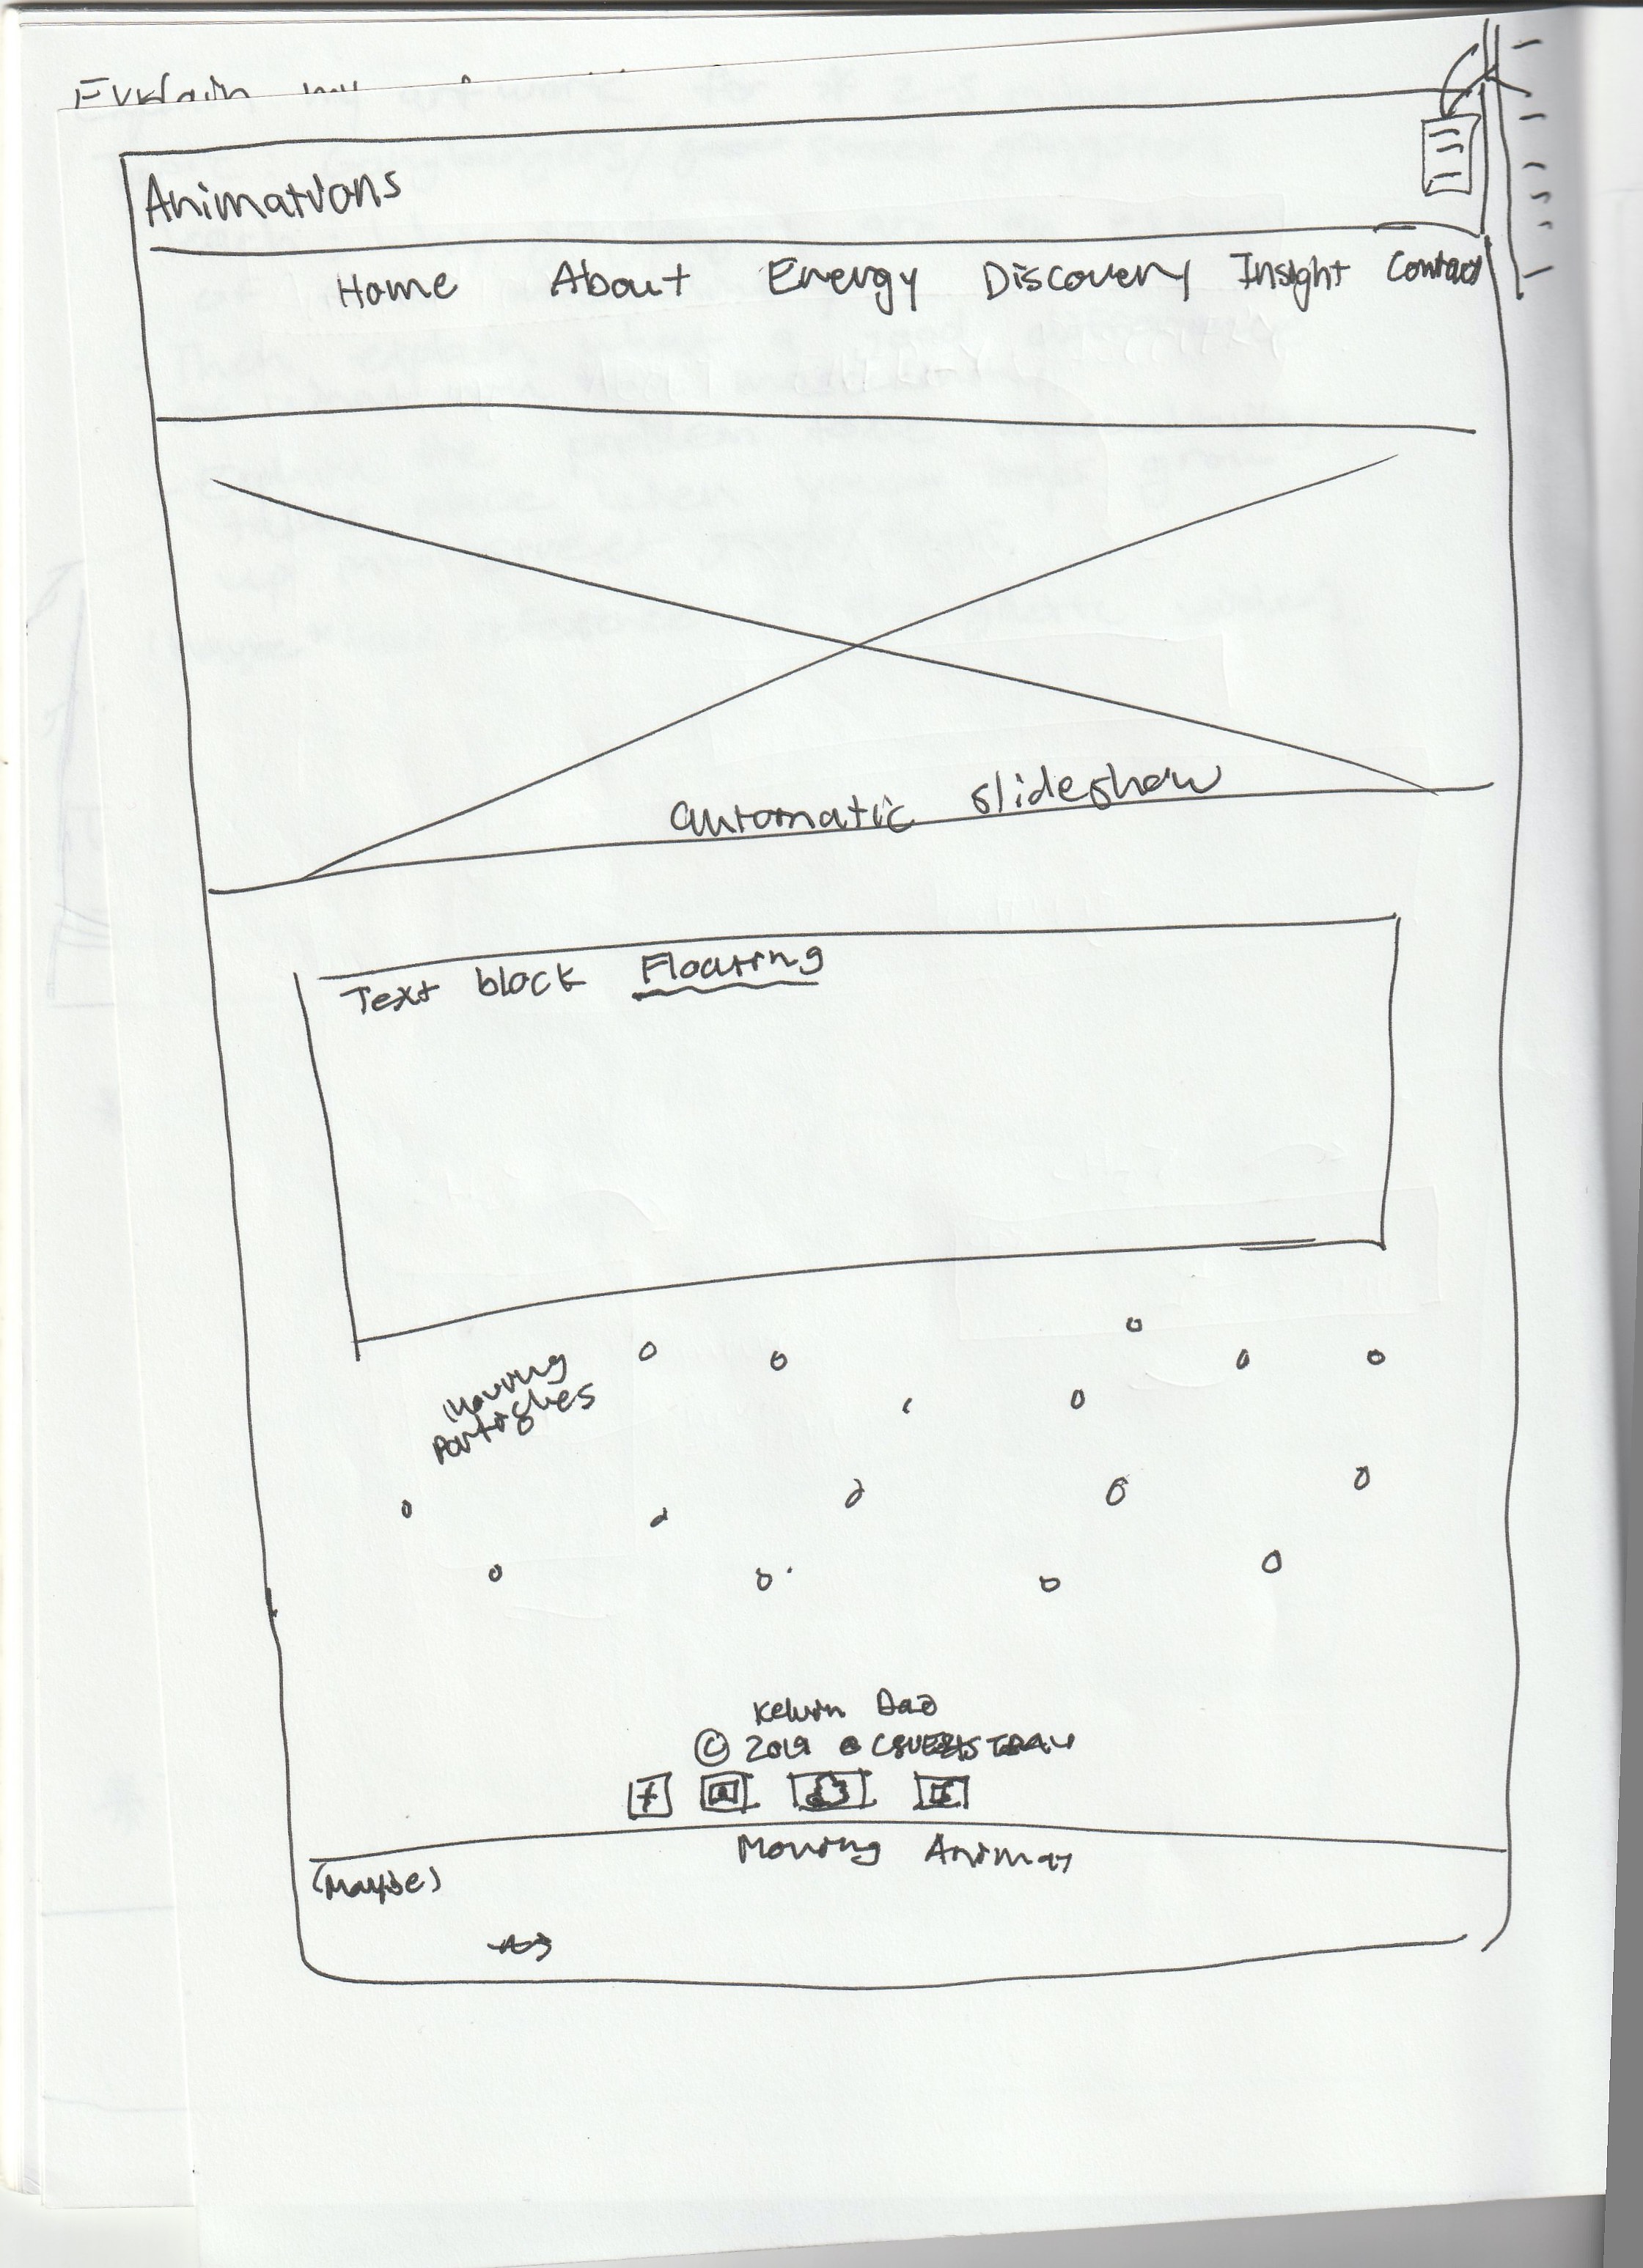 Explain my
Animations
Home About Energy Discovery Insight Contact
automatic slideshow
Text block Floating
Moving
Particles
Kelvin Dao
© 2019
f
Moving Animat
(Maybe)